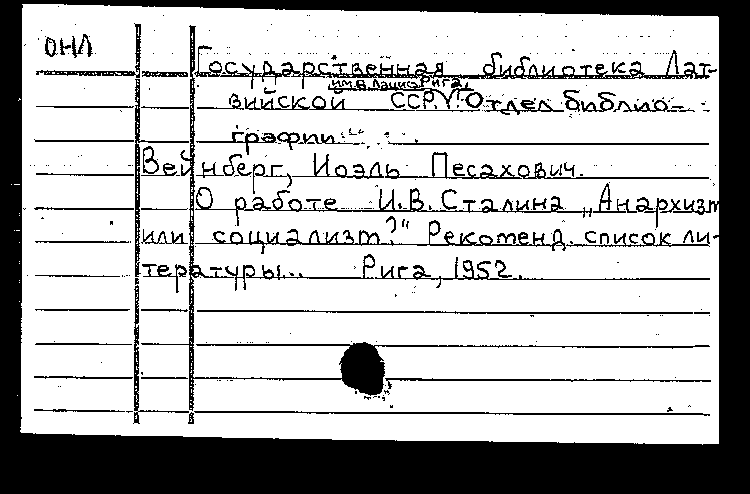 ОНЛ
Государственная библиотека Лат-
им. В. Лациса Рига.
вийской ССР. Отдел библио-
графии
Вейнберг, Иоэль Песахович.
О работе И.В. Сталина „Анархизм
или социализм?" Рекоменд. список ли-
тературы... Рига, 1952.